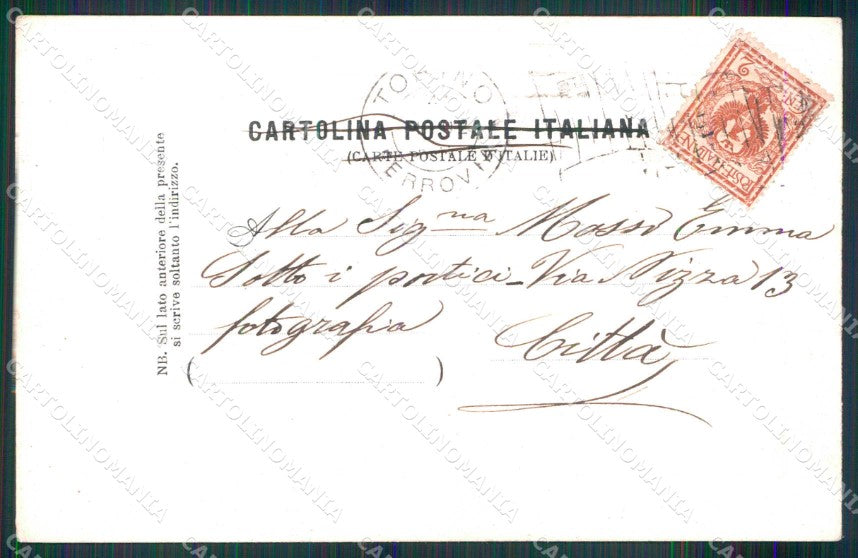 CARTOLINA POSTALE ITALIANA
(CARTE POSTALE D'ITALIE)
TORINO
FERROVIA
2
POSTE ITALIANE
Alla Signa Masso Emma
Sotto i portici - Via Nizza 13
fotografia
Città
NB. Sul lato anteriore della presente
si scrive soltanto l'indirizzo.
CARTOLINOMANIA